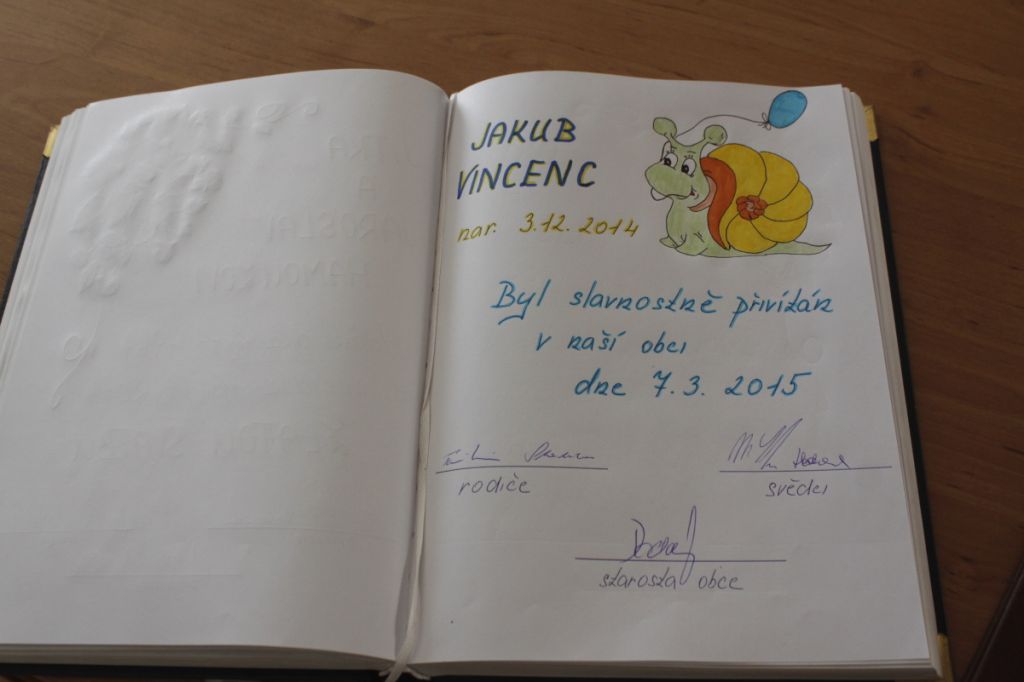 JAKUB
VINCENC
nar. 3.12.2014
Byl slavnostně přivítán
v naší obci
dne 7.3. 2015
rodiče
svědci
starosta obce